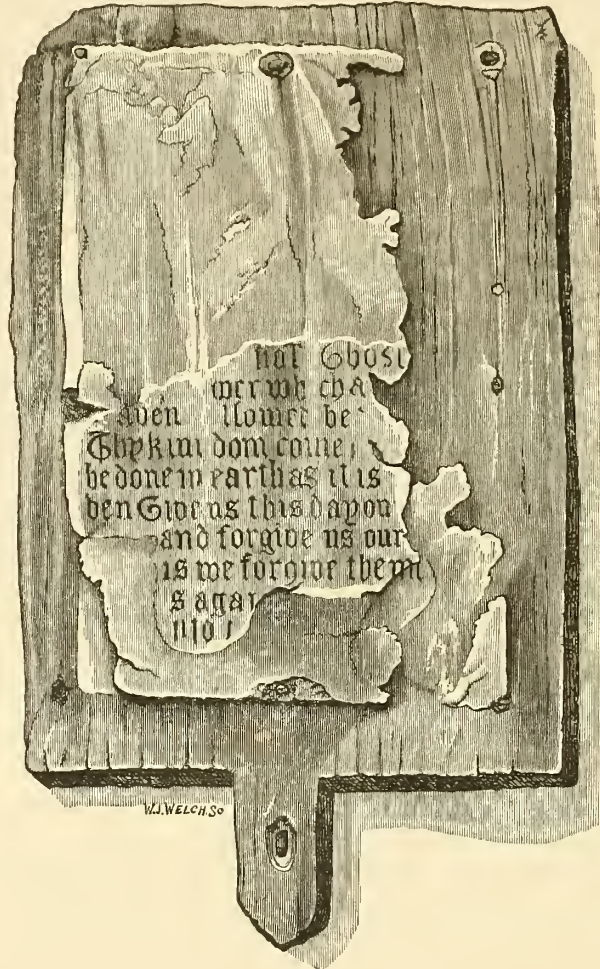 hol Ghost
wer wh ch a
aven llowet be
Thy kin dom come,
be done in earth as it is
ben Give us this day ou
and forgive us our
as we forgive them
s agai
njo
W.J.WELCH.SO